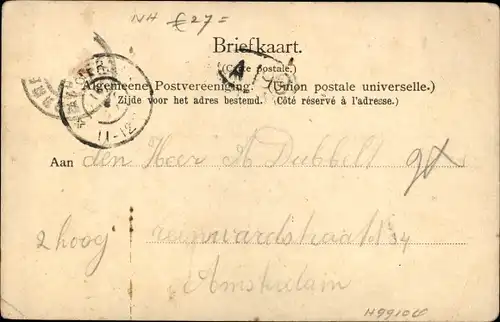 NH £ 27=
Briefkaart.
(Carte postale.)
Algemeene Postvereeniging. (Union postale universelle.)
Zijde voor het adres bestemd. (Côté réservé à l'adresse.)
11-12
Aan den Heer A Dubbelt
2 hoog
34
Amsterdam
H9910